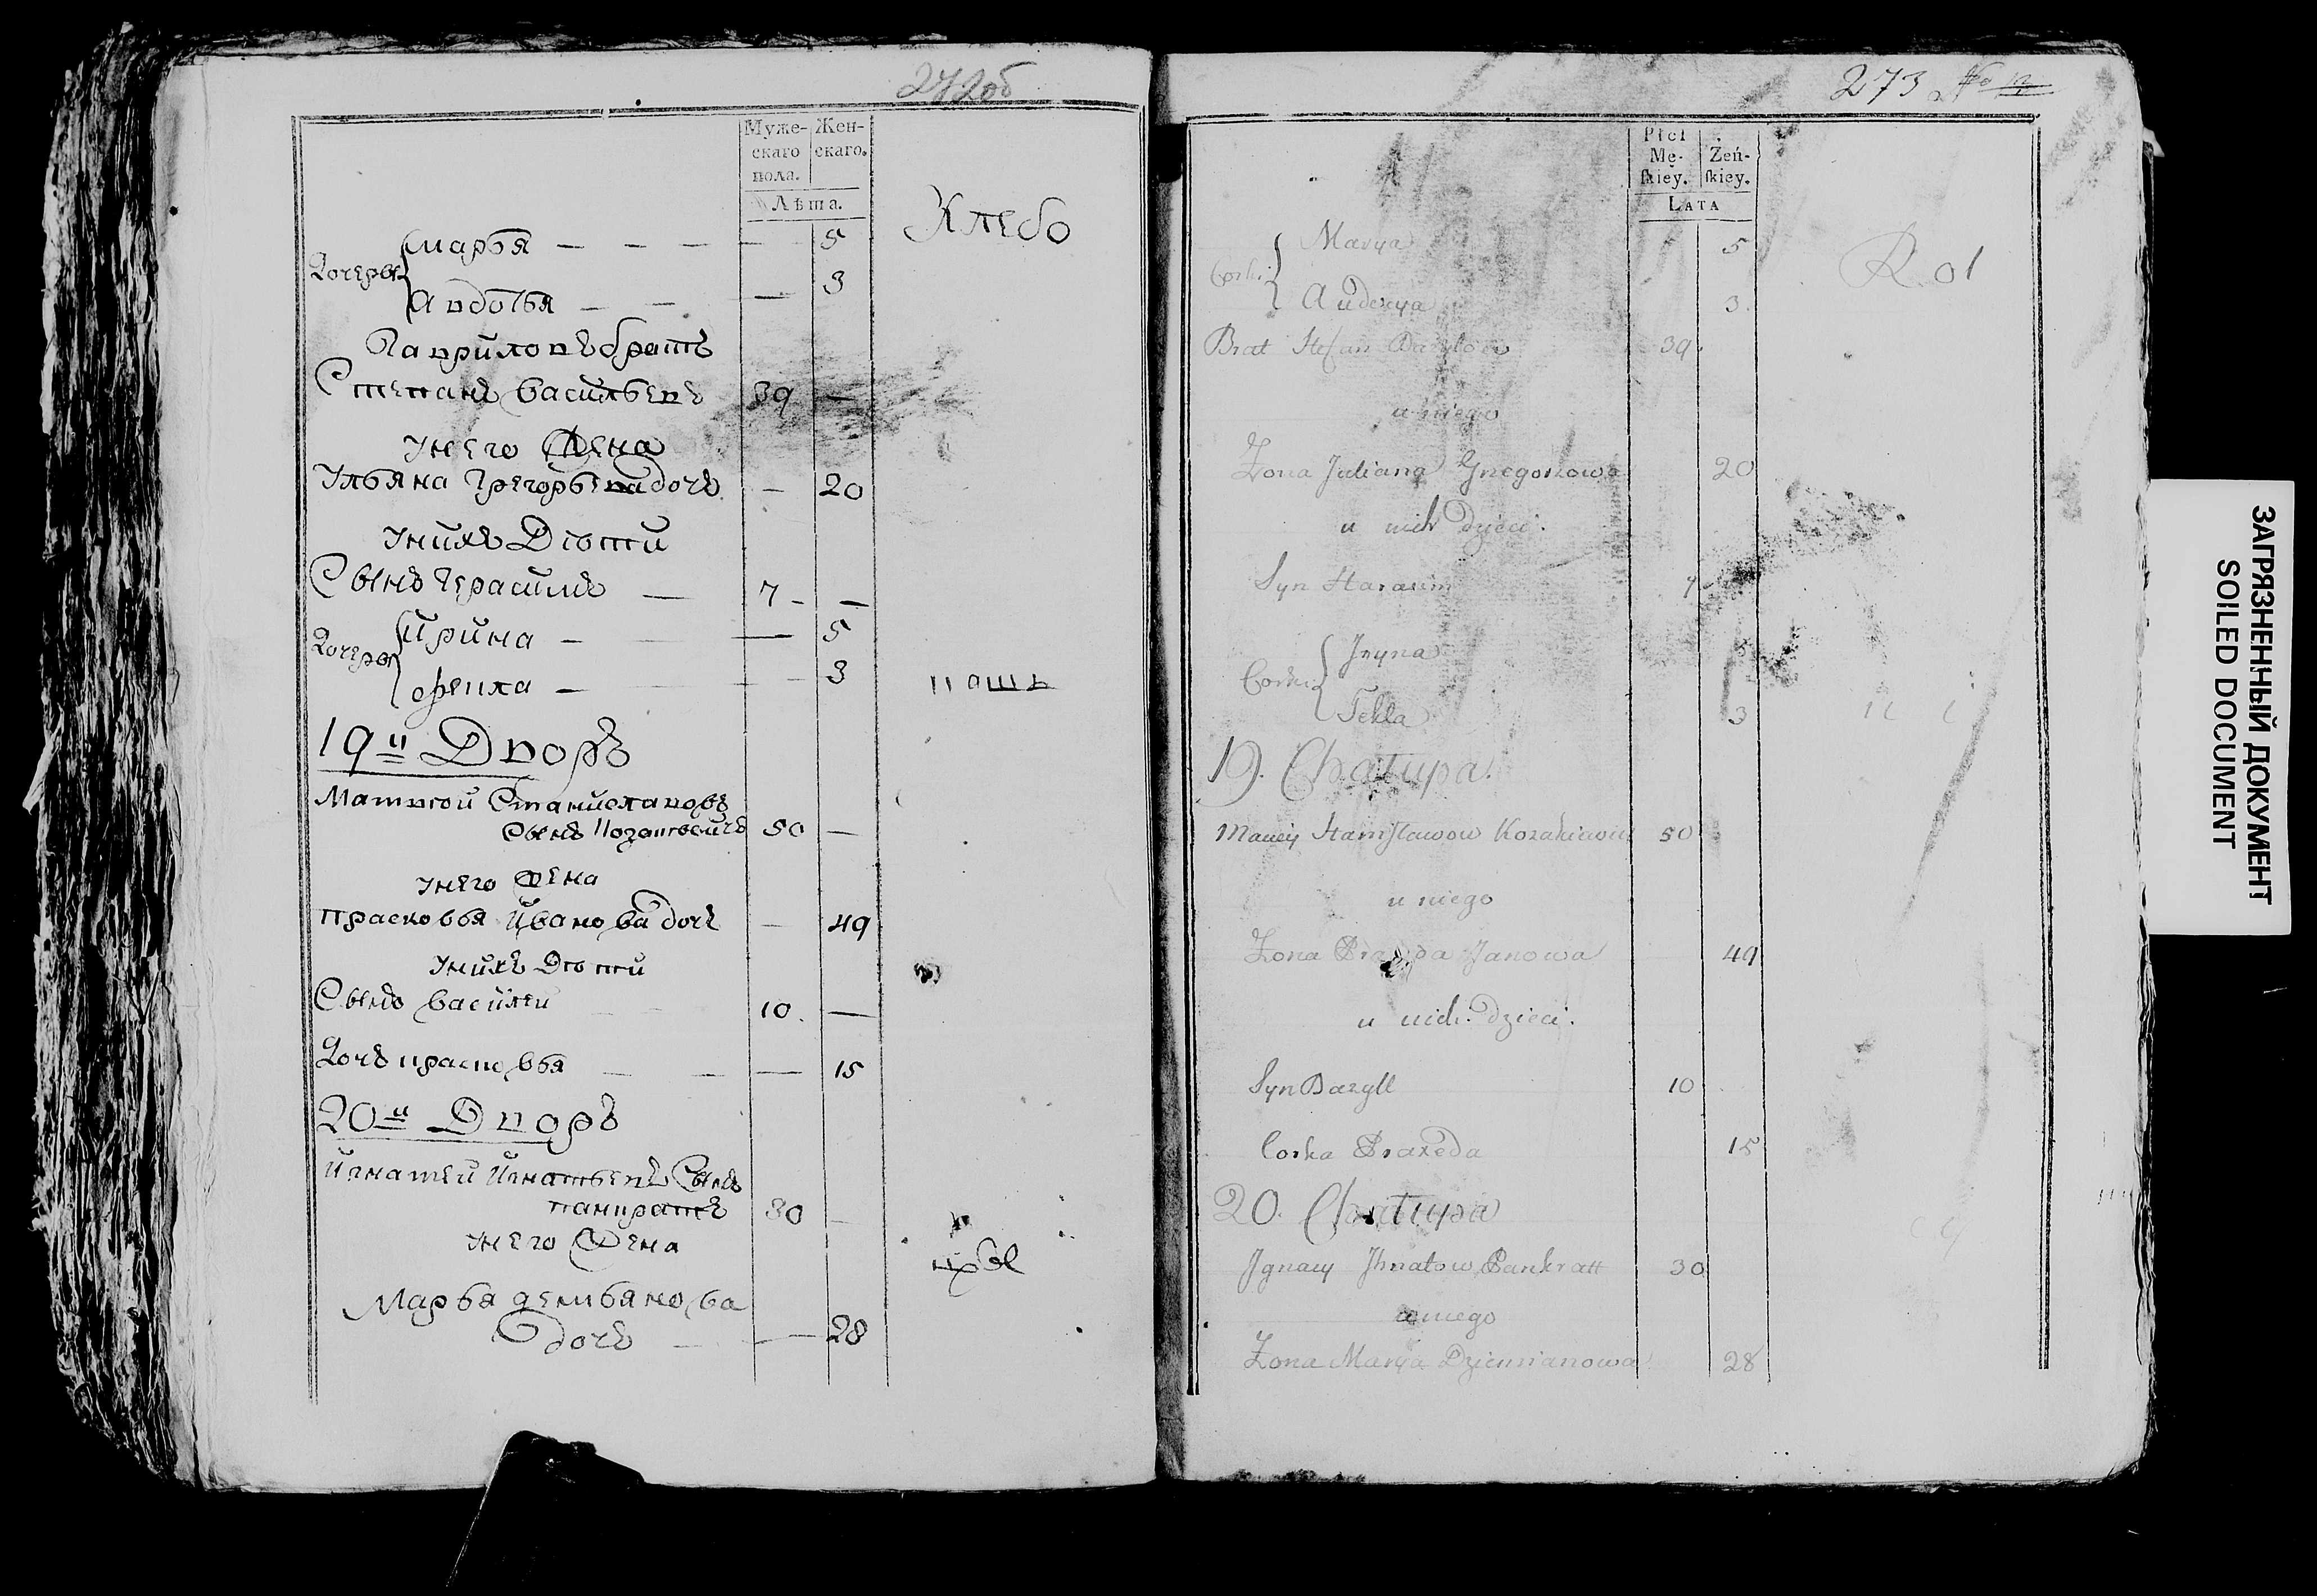 272об
Муже- Жен-
скаго скаго.
пола.
Лѣта.
Марья — — — — 5
Дочеры
Авдотья — — — 3
Гавриловъ братъ
Степанъ Васильевъ 39 —
У него жена
Ульяна Грегорьева дочь — 20
У нихъ дѣти
Сынъ Герасимъ — 7 — —
Ирина — — — 5
Дочеры
Фекла — — — 3
19й Дворъ
Матвей Станиславовъ
сынъ Козакевичъ 50 —
У него жена
Прасковья Иванова дочь — 49
У нихъ дѣти
Сынъ Василеи 10. —
Дочь Прасковья — — — 15
20й Дворъ
Игнатей Игнатьевъ сынъ
Панкратъ 30 —
У него жена
Марья Демьянова
дочь — — 28
Клебо
273
Płci
Mę- Żeń-
ſkiey. ſkiey.
LATA
Marya 5
Corki
Audocya 3.
Brat Stefan Bazylow 39.
u niego
Żona Juliana Gregorowa 20
u nich dzieci.
Syn Harasim 7
Jryna
Corki
Tekla 3
19. Chałupa.
Maciey Stanisławow Kozakiewicz 50
u niego
Żona Praxeda Janowa 49
u nich dzieci.
Syn Bazyll 10
Corka Praxeda 15
20. Chałupa
Jgnacy Jhnatow Pankratt 30
u niego
Żona Marya Dziemianowa 28
ЗАГРЯЗНЕННЫЙ ДОКУМЕНТ
SOILED DOCUMENT